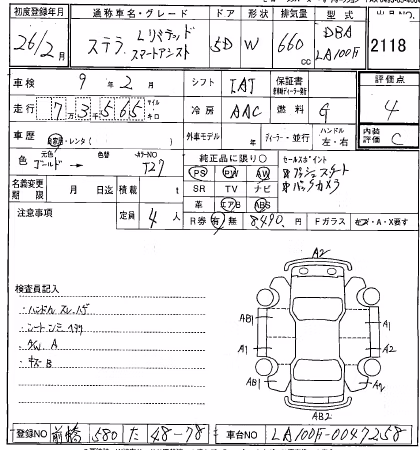 初度登録年月 通称車名・グレード ドア 形状 排気量 型式 出品No.
26/2月 ステラ Lリミテッド スマートアシスト 5D W 660cc DBA LA100F 2118
車検 9年2月 シフト IAT 保証書 評価点
走行 7万3千565 マイル キロ 冷房 AAC 燃料 G 4
車歴 自家用・レンタ( ) 外車モデル 年 ディーラー・並行 ハンドル 左・右 内装評価 C
色 元色 ゴールド → 色替 カラーNO T27 純正品に限り○ セールスポイント
PS PW AW プッシュスタート
名義変更期限 月 日迄 積載 t SR TV ナビ バックカメラ
革 エアB ABS
注意事項 定員 4人 R券 有 無 8490円 Fガラス ・A・X要す
A2
検査員記入
・ハンドル スレ ハゲ
・シート シミ ヘタリ
・ A
・キズ B
AB1 A1
A1 A2
AB1 A2
AB2
登録NO 前橋 580 た 48-78 車台NO LA100F-0047258